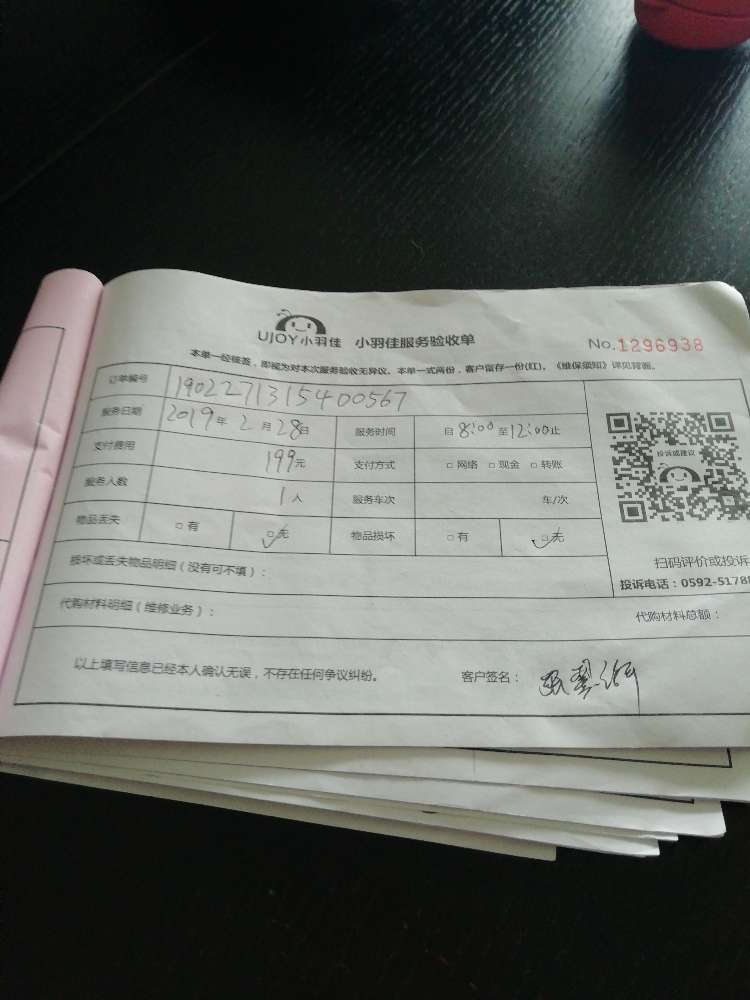 UJOY小羽佳 小羽佳服务验收单 No.1296938
本单一经核签，即视为对本次服务验收无异议。本单一式两份，客户留存一份(红)。《维保须知》详见背面。
订单编号 1902271315400567
服务日期 2019年2月28日 服务时间 自8:00至12:00止
支付费用 199元 支付方式 □网络 □现金 □转账
服务人数 1人 服务车次 车/次
物品丢失 □有 □无 物品损坏 □有 □无
投诉或建议
扫码评价或投诉
投诉电话：0592-5178
损坏或丢失物品明细（没有可不填）：
代购材料明细（维修业务）： 代购材料总额：
以上填写信息已经本人确认无误，不存在任何争议纠纷。 客户签名：